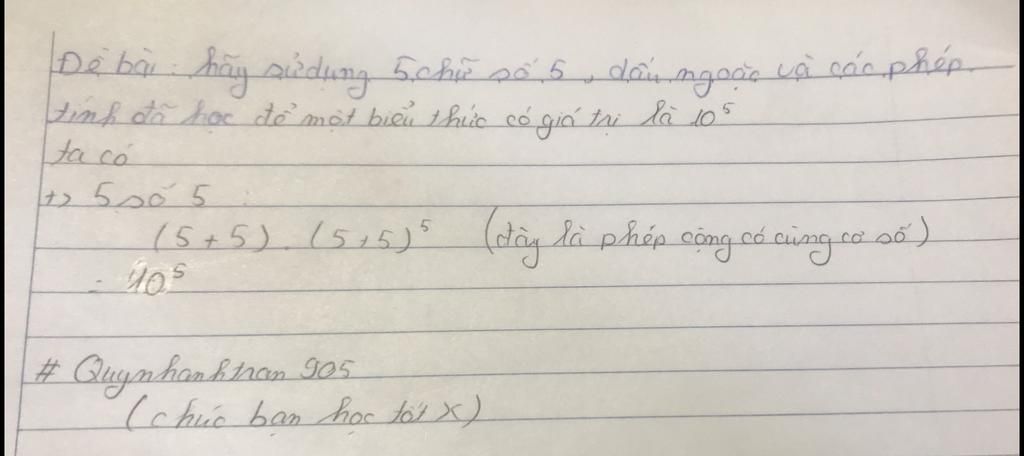 Đề bài: hãy sử dụng 5 chữ số 5, dấu ngoặc và các phép
tính đã học để một biểu thức có giá trị là 10⁵
ta có
+> 5 số 5 :
(5+5).(5+5)⁵ (đây là phép cộng có cùng cơ số)
= 10⁵
# Quynhanhtran 905
(chúc bạn học tốt x)